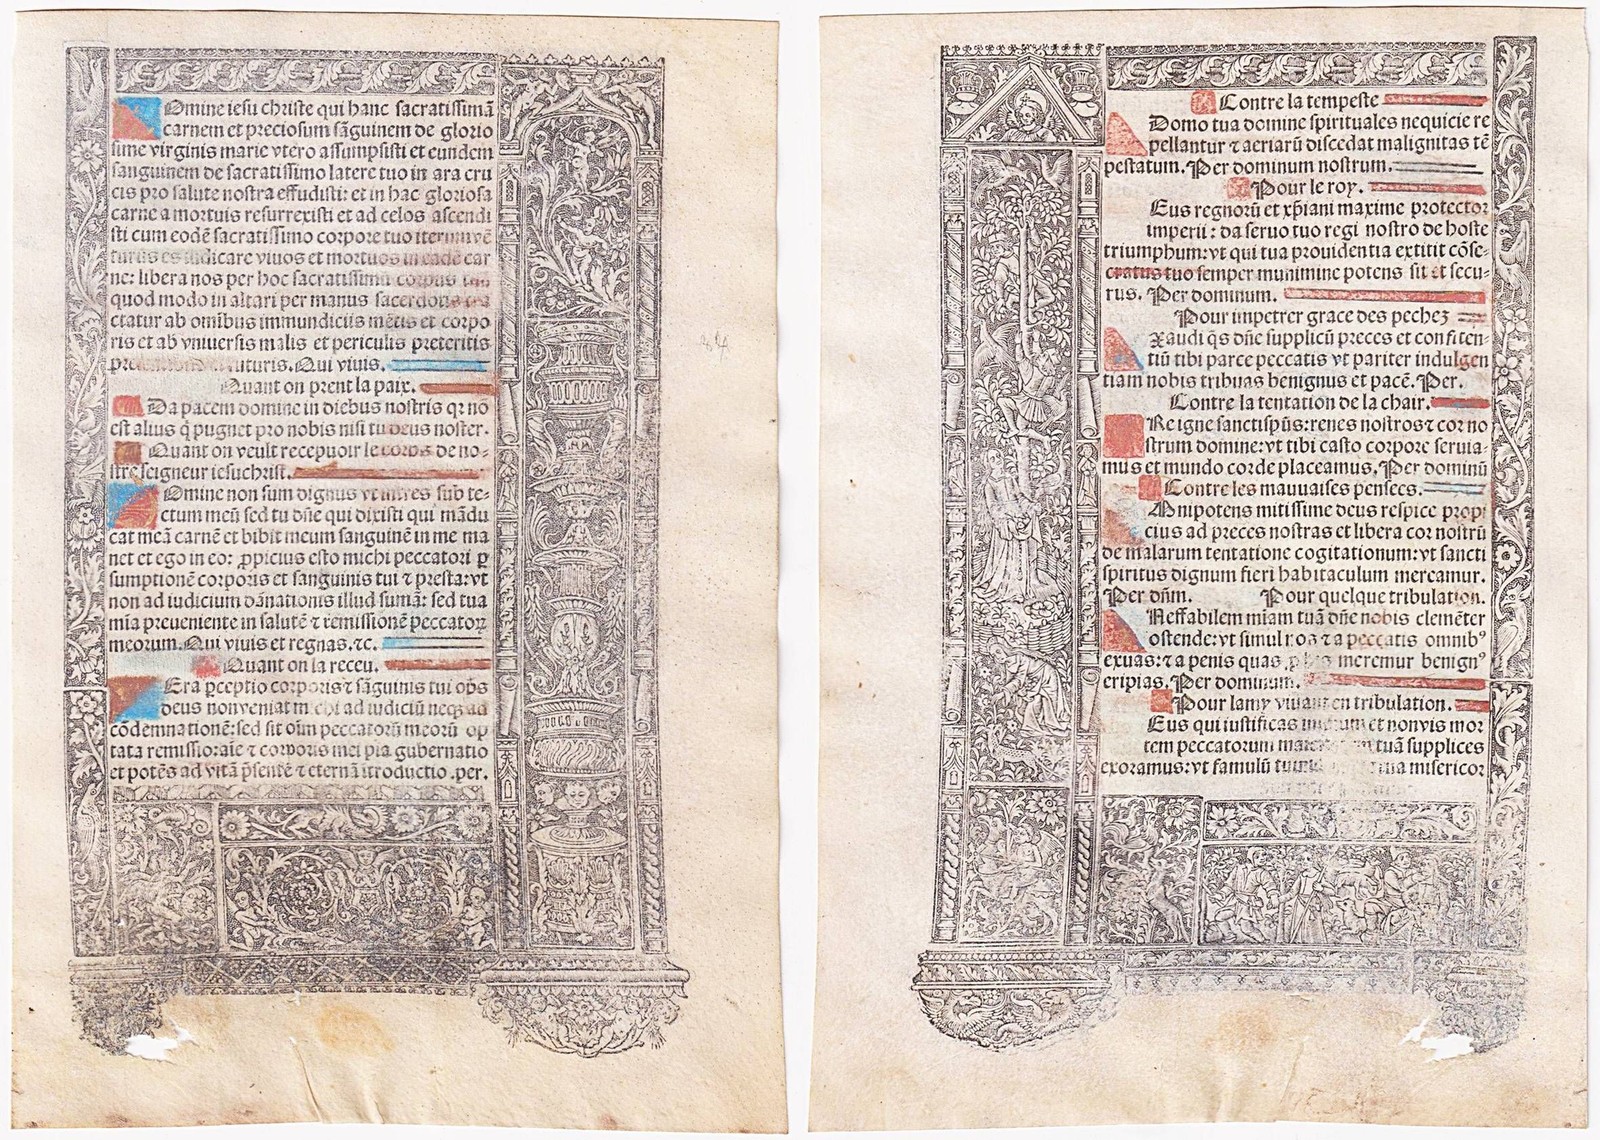 Omine iesu christe qui hanc sacratissimā
carnem et preciosum sāguinem de glorio
sime virginis marie vtero assumpsisti et eundem
sanguinem de sacratissimo latere tuo in ara cru
cis pro salute nostra effudisti: et in hac gloriosa
carne a mortuis resurrexisti et ad celos ascendi
sti cum eodē sacratissimo corpore tuo iterum vē
turus es iudicare viuos et mortuos in eadē car
ne: libera nos per hoc sacratissimū corpus tuū
quod modo in altari per manus sacerdotis tra
ctatur ab omībus immundiciis mētis et corpo
ris et ab vniuersis malis et periculis preteritis
futuris. Qui viuis.
Quant on prent la paix.
Da pacem domine in diebus nostris qr nō
est alius q̄ pugnet pro nobis nisi tu deus noster.
Quant on veult recepuoir le corps de no-
stre seigneur iesuchrist.
Omine non sum dignus vt intres sub te-
ctum meū sed tu dn̄e qui dixisti qui mādu
cat meā carnē et bibit meum sanguinē in me ma
net et ego in eo: ꝓpicius esto michi peccatori ꝑ
sumptionē corporis et sanguinis tui ⁊ presta: vt
non ad iudicium dānationis illud sumā: sed tua
mīa preueniente in salutē ⁊ remissionē peccatoꝝ
meorum. Qui viuis et regnas. ⁊c.
Quant on la receu.
Era ꝑceptio corporis ⁊ sāguinis tui op̄s
deus non veniat michi ad iudiciū neqꝫ ad
cōdemnationē: sed sit oīm peccatorū meorū op
tata remissio: aīe ⁊ corporis mei pia gubernatio
et potēs ad vitā p̄sentē ⁊ eternā ītroductio. per.
Contre la tempeste
Domo tua domine spirituales nequicie re
pellantur ⁊ aeriarū discedat malignitas tē
pestatum. Per dominum nostrum.
Pour le roy.
Eus regnorū et xp̄iani maxime protector
imperii: da seruo tuo regi nostro de hoste
triumphum: vt qui tua prouidentia extitit cōse-
cratus tuo semper munimine potens sit et secu-
rus. Per dominum.
Pour impetrer grace des pechez
Xaudi q̄s dn̄e supplicū preces et confiten-
tiū tibi parce peccatis vt pariter indulgen
tiam nobis tribuas benignus et pacē. Per.
Contre la tentation de la chair.
Re igne sancti sp̄us: renes nostros ⁊ cor no
strum domine: vt tibi casto corpore seruia-
mus et mundo corde placeamus. Per dominū
Contre les mauuaises pensees.
Mnipotens mitissime deus respice propi
cius ad preces nostras et libera cor nostrū
de malarum tentatione cogitationum: vt sancti
spiritus dignum fieri habitaculum mereamur.
Per dn̄m. Pour quelque tribulation.
Neffabilem miam tuā dn̄e nobis clemēter
ostende: vt simul nos ⁊ a peccatis omnibꝰ
exuas: ⁊ a penis quas meremur benignꝰ
eripias. Per dominum.
Pour lamy viuant en tribulation.
Eus qui iustificas impium et non vis mor
tem peccatorum tuā supplices
exoramus: vt famulū tuum misericor